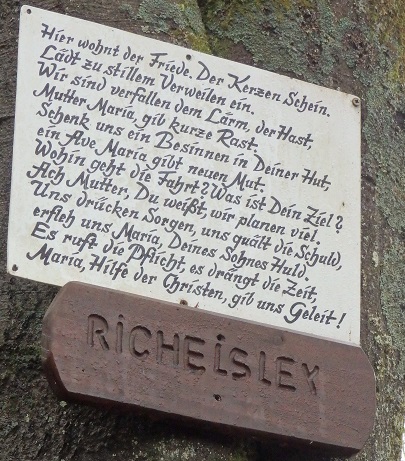 Hier wohnt der Friede. Der Kerzen Schein.
Lädt zu stillem Verweilen ein.
Wir sind verfallen dem Lärm, der Hast,
Mutter Maria, gib kurze Rast.
Schenk uns ein Besinnen in Deiner Hut,
ein Ave Maria gibt neuen Mut.
Wohin geht die Fahrt? Was ist Dein Ziel?
Ach Mutter, Du weißt, wir planen viel.
Uns drücken Sorgen, uns quält die Schuld,
erfleh uns Maria, Deines Sohnes Huld.
Es ruft die Pflicht, es drängt die Zeit,
Maria, Hilfe der Christen, gib uns Geleit!
RiCHEiSLEY